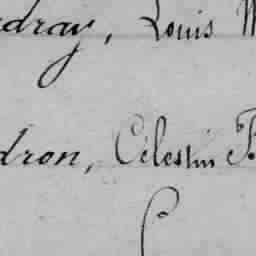 dray, Louis
dron, Célestin